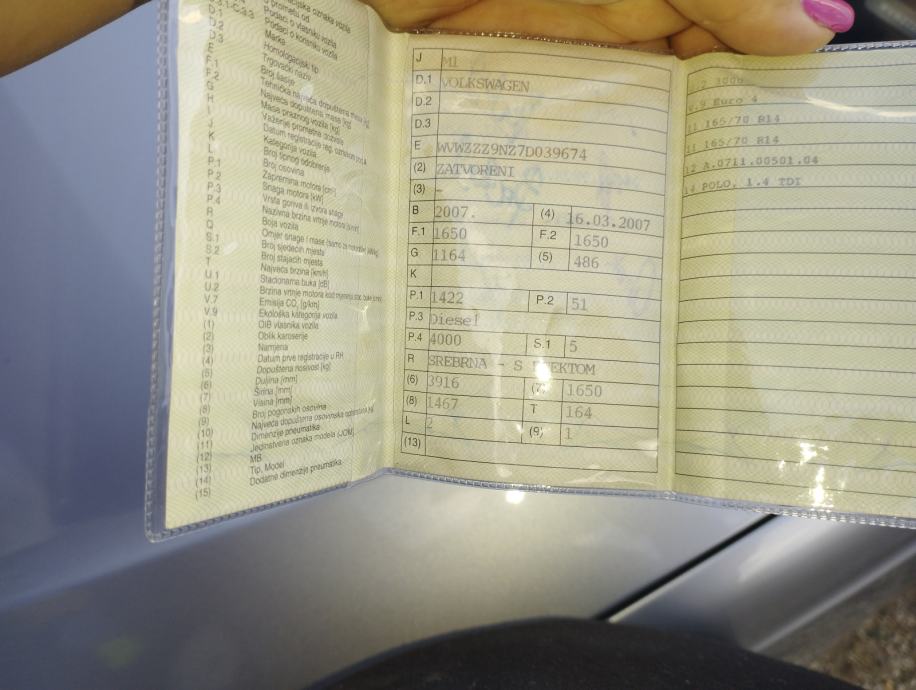 Podaci o vlasniku vozila
D.1 Podaci o korisniku vozila
D.2 Marka
D.3 Homologacijski tip
E Trgovački naziv
F.1 Broj šasije
F.2 Tehnička najveća dopuštena masa [kg]
G Najveća dopuštena masa [kg]
H Masa praznog vozila [kg]
I Važenje prometne dozvole
J Datum registracije reg. oznakom pod A
K Kategorija vozila
L Broj tipnog odobrenja
P.1 Broj osovina
P.2 Zapremina motora [cm³]
P.3 Snaga motora [kW]
P.4 Vrsta goriva ili izvora snage
R Nazivna brzina vrtnje motora [o/min]
Q Boja vozila
S.1 Omjer snage i mase
S.2 Broj sjedećih mjesta
T Broj stajaćih mjesta
U.1 Najveća brzina [km/h]
U.2 Stacionarna buka [dB]
V.7 Brzina vrtnje motora kod mjerenja
V.9 Emisija CO₂ [g/km]
(1) Ekološka kategorija vozila
(2) OIB vlasnika vozila
(3) Oblik karoserije
(4) Namjena
(5) Datum prve registracije u RH
(6) Dopuštena nosivost [kg]
(7) Duljina [mm]
(8) Širina [mm]
(9) Visina [mm]
(10) Broj pogonskih osovina
(11) Najveća dopuštena osovinska
(12) Dimenzije pneumatika
(13) Jedinstvena oznaka modela (JOM)
(14) MB
(15) Tip, Model
Dodatne dimenzije pneumatika
J M1
D.1 VOLKSWAGEN
D.2
D.3
E WVWZZZ9NZ7D039674
(2) ZATVORENI
(3) -
B 2007. (4) 16.03.2007
F.1 1650 F.2 1650
G 1164 (5) 486
K
P.1 1422 P.2 51
P.3 Diesel
P.4 4000 S.1 5
R SREBRNA - S EFEKTOM
(6) 3916 (7) 1650
(8) 1467 T 164
L 2 (9) 1
(13)
2 3000
V.9 Euro 4
11 165/70 R14
11 165/70 R14
12 A.0711.00501.04
14 POLO, 1.4 TDI